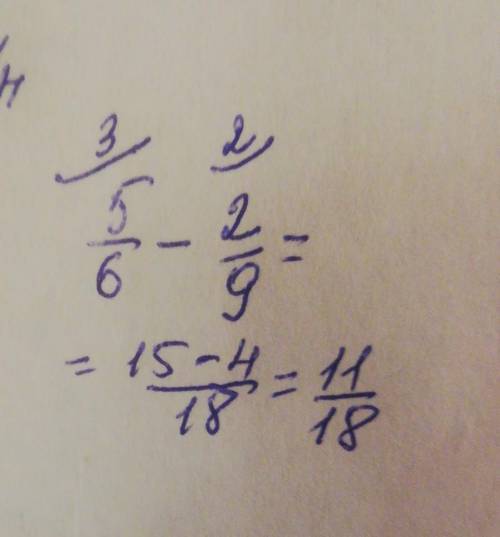 3 2
5/6 - 2/9 =
= 15-4/18 = 11/18